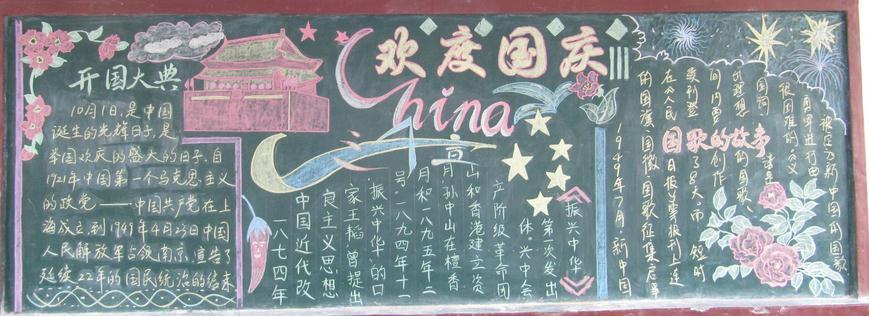 开国大典
10月1日,是中国
诞生的光辉日子,是
举国欢庆的盛大的日子.自
1921年中国第一个马克思主义
的政党——中国共产党在上
海成立,到1949年4月23日中国
人民解放军占领南京,宣告了
延续22年的国民统治的结束
欢度国庆
China
《振兴中华》
第一次发出
休兴中会
产阶级革命团
山和香港建立资
月孙中山在檀香
月和一八九五年二
号.一八九四年十一
振兴中华"的口
家王韬曾提出
良主义思想
中国近代改
一八七四年
国歌的故事
1949年7月,新中国
的国旗、国徽、国歌征集启事
在《人民日报》等报刊上连
续刊登了8天,而短时
间内要创作
出理想的国歌
被定为新中国的国歌